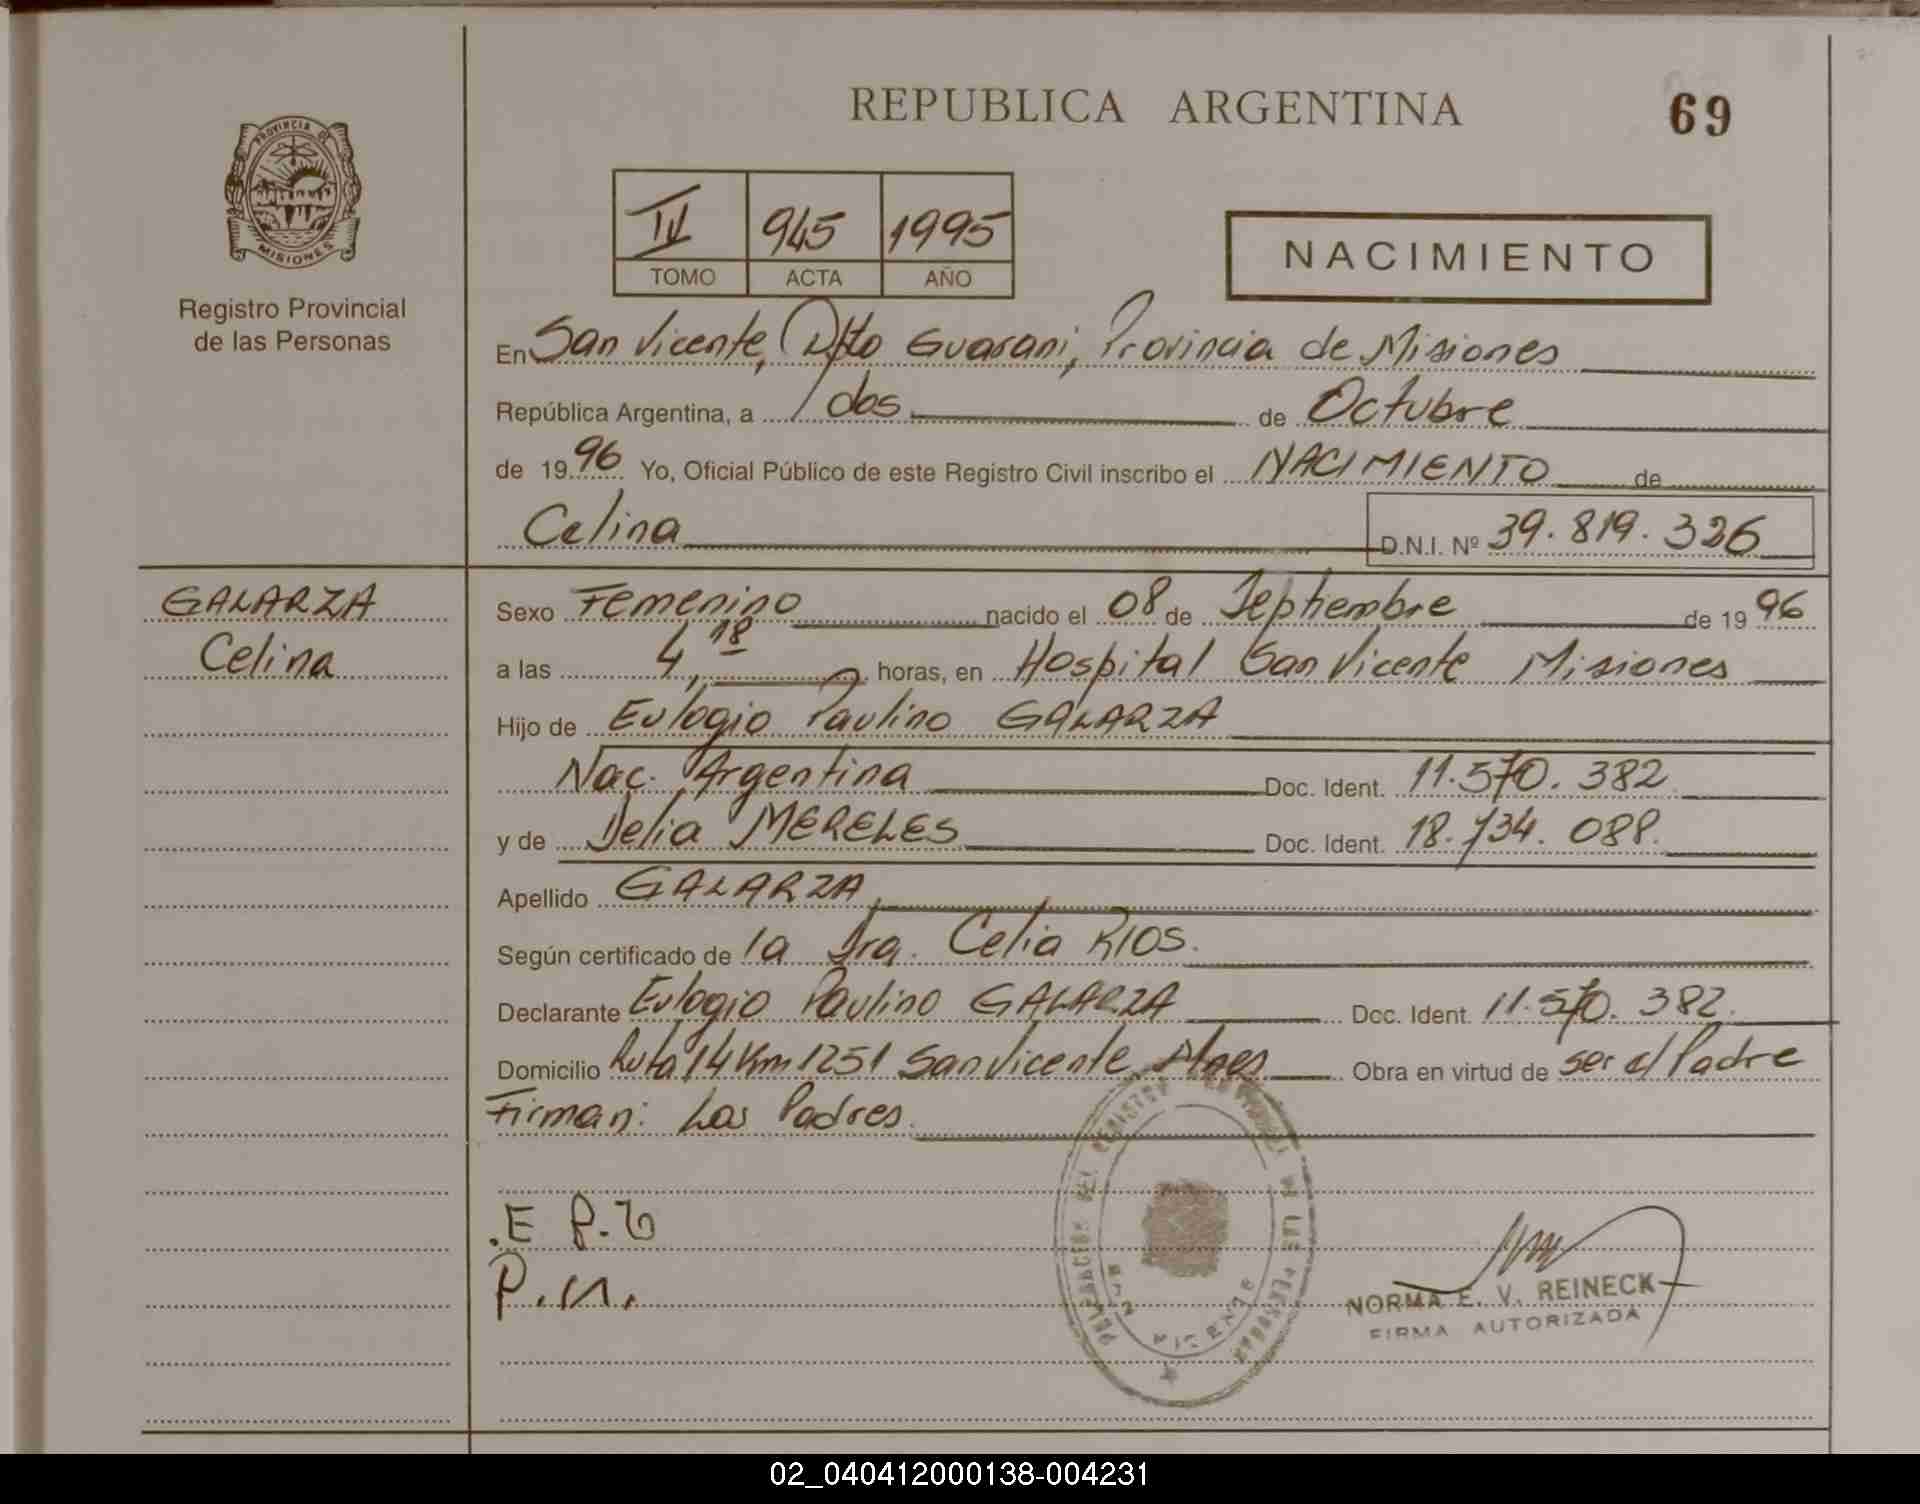 REPUBLICA ARGENTINA
69
PROVINCIA DE
MISIONES
Registro Provincial
de las Personas
IV 945 1995
TOMO ACTA AÑO
NACIMIENTO
En San Vicente, Dpto Guarani, Provincia de Misiones
República Argentina, a dos de Octubre
de 1996 Yo, Oficial Público de este Registro Civil inscribo el NACIMIENTO de
Celina D.N.I. Nº 39.819.326
GALARZA
Celina
Sexo Femenino nacido el 08 de Septiembre de 1996
a las 4,18 horas, en Hospital San Vicente Misiones
Hijo de Eulogio Paulino GALARZA
Nac. Argentina Doc. Ident. 11.570.382
y de Delia MERELES Doc. Ident. 18.734.088.
Apellido GALARZA
Según certificado de la Dra. Celia RIOS.
Declarante Eulogio Paulino GALARZA Doc. Ident. 11.570.382.
Domicilio Ruta 14 Km 1251 San Vicente Mnes Obra en virtud de ser el Padre
Firman: Los Padres.
.E P.G
P.M.
DELEGACION DEL REGISTRO PROVINCIAL DE LAS PERSONAS
SAN VICENTE
NORMA E. V. REINECK
FIRMA AUTORIZADA
02_040412000138-004231